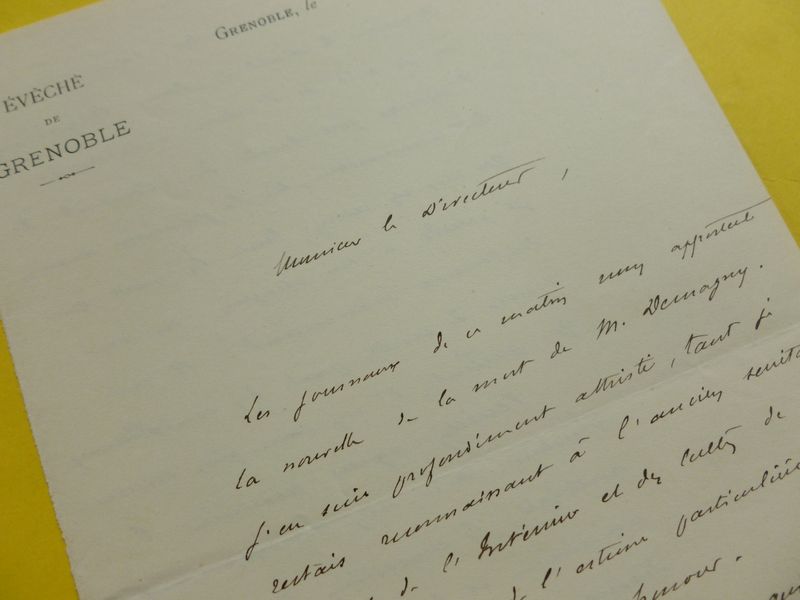 GRENOBLE, le
ÉVÊCHÉ
DE
GRENOBLE
Monsieur le Directeur,
Les journaux de ce matin nous apportent
la nouvelle de la mort de M. Demagny.
J'en suis profondément attristé, tant je
restais reconnaissant à l'ancien
de l'Intérieur et des Cultes de
de l'estime particulière